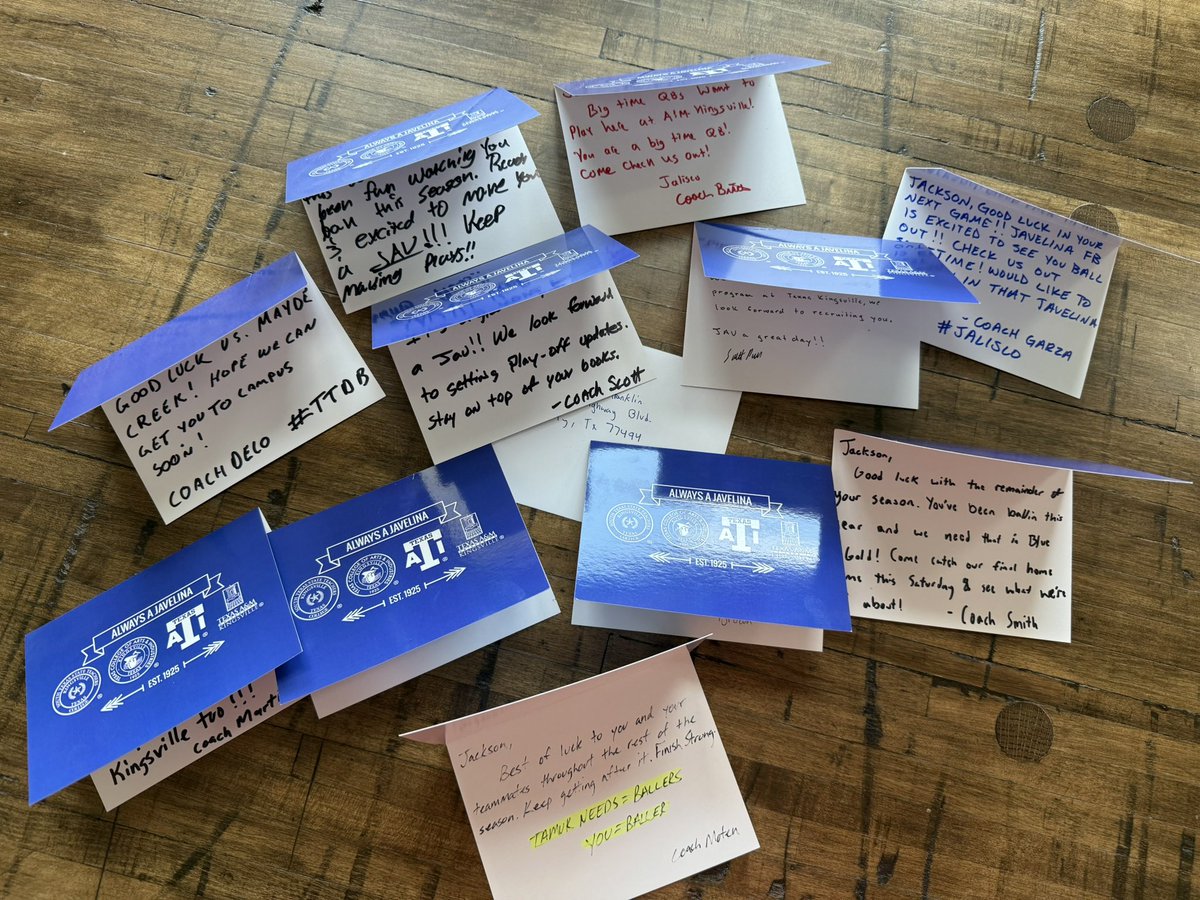 Big time QBs want to
Play here at A&M Kingsville!
You are a big time QB!
Come check us out!
Jalisco
Coach
ALWAYS A JAVELINA
EST. 1925
been fun watching you
ball this season.
is excited to move you
a JAV!!! Keep
making Plays!!
JACKSON, GOOD LUCK IN YOUR
NEXT GAME!! JAVELINA FB
IS EXCITED TO SEE YOU BALL
OUT!! CHECK US OUT
TIME! WOULD LIKE TO
IN THAT JAVELINA
- COACH GARZA
#JALISCO
ALWAYS A JAVELINA
program at Texas Kingsville, we
look forward to recruiting you.
JAV a great day!!
GOOD LUCK VS. MAYDE
CREEK! HOPE WE CAN
GET YOU TO CAMPUS
SOON!
COACH DELO #TTDB
a Jav!! We look forward
to setting Play-off updates.
Stay on top of your books.
- COACH SCOTT
Blvd.
TX 77494
Jackson,
Good luck with the remainder of
your season. You've been ballin this
ear and we need that in Blue
Gold! Come catch our final home
me this Saturday & see what we're
about!
- Coach Smith
ALWAYS A JAVELINA
TEXAS
A&I
TEXAS A&M
KINGSVILLE
EST. 1925
ALWAYS A JAVELINA
TEXAS
A&I
TEXAS A&M
KINGSVILLE
EST. 1925
ALWAYS A JAVELINA
TEXAS
A&I
TEXAS A&M
KINGSVILLE
EST. 1925
Kingsville too!!!
Coach Mart
-Jackson,
Best of luck to you and your
teammates throughout the rest of the
season. Keep getting after it. Finish Strong.
TAMUK NEEDS = BALLERS
YOU = BALLER
Coach Moten